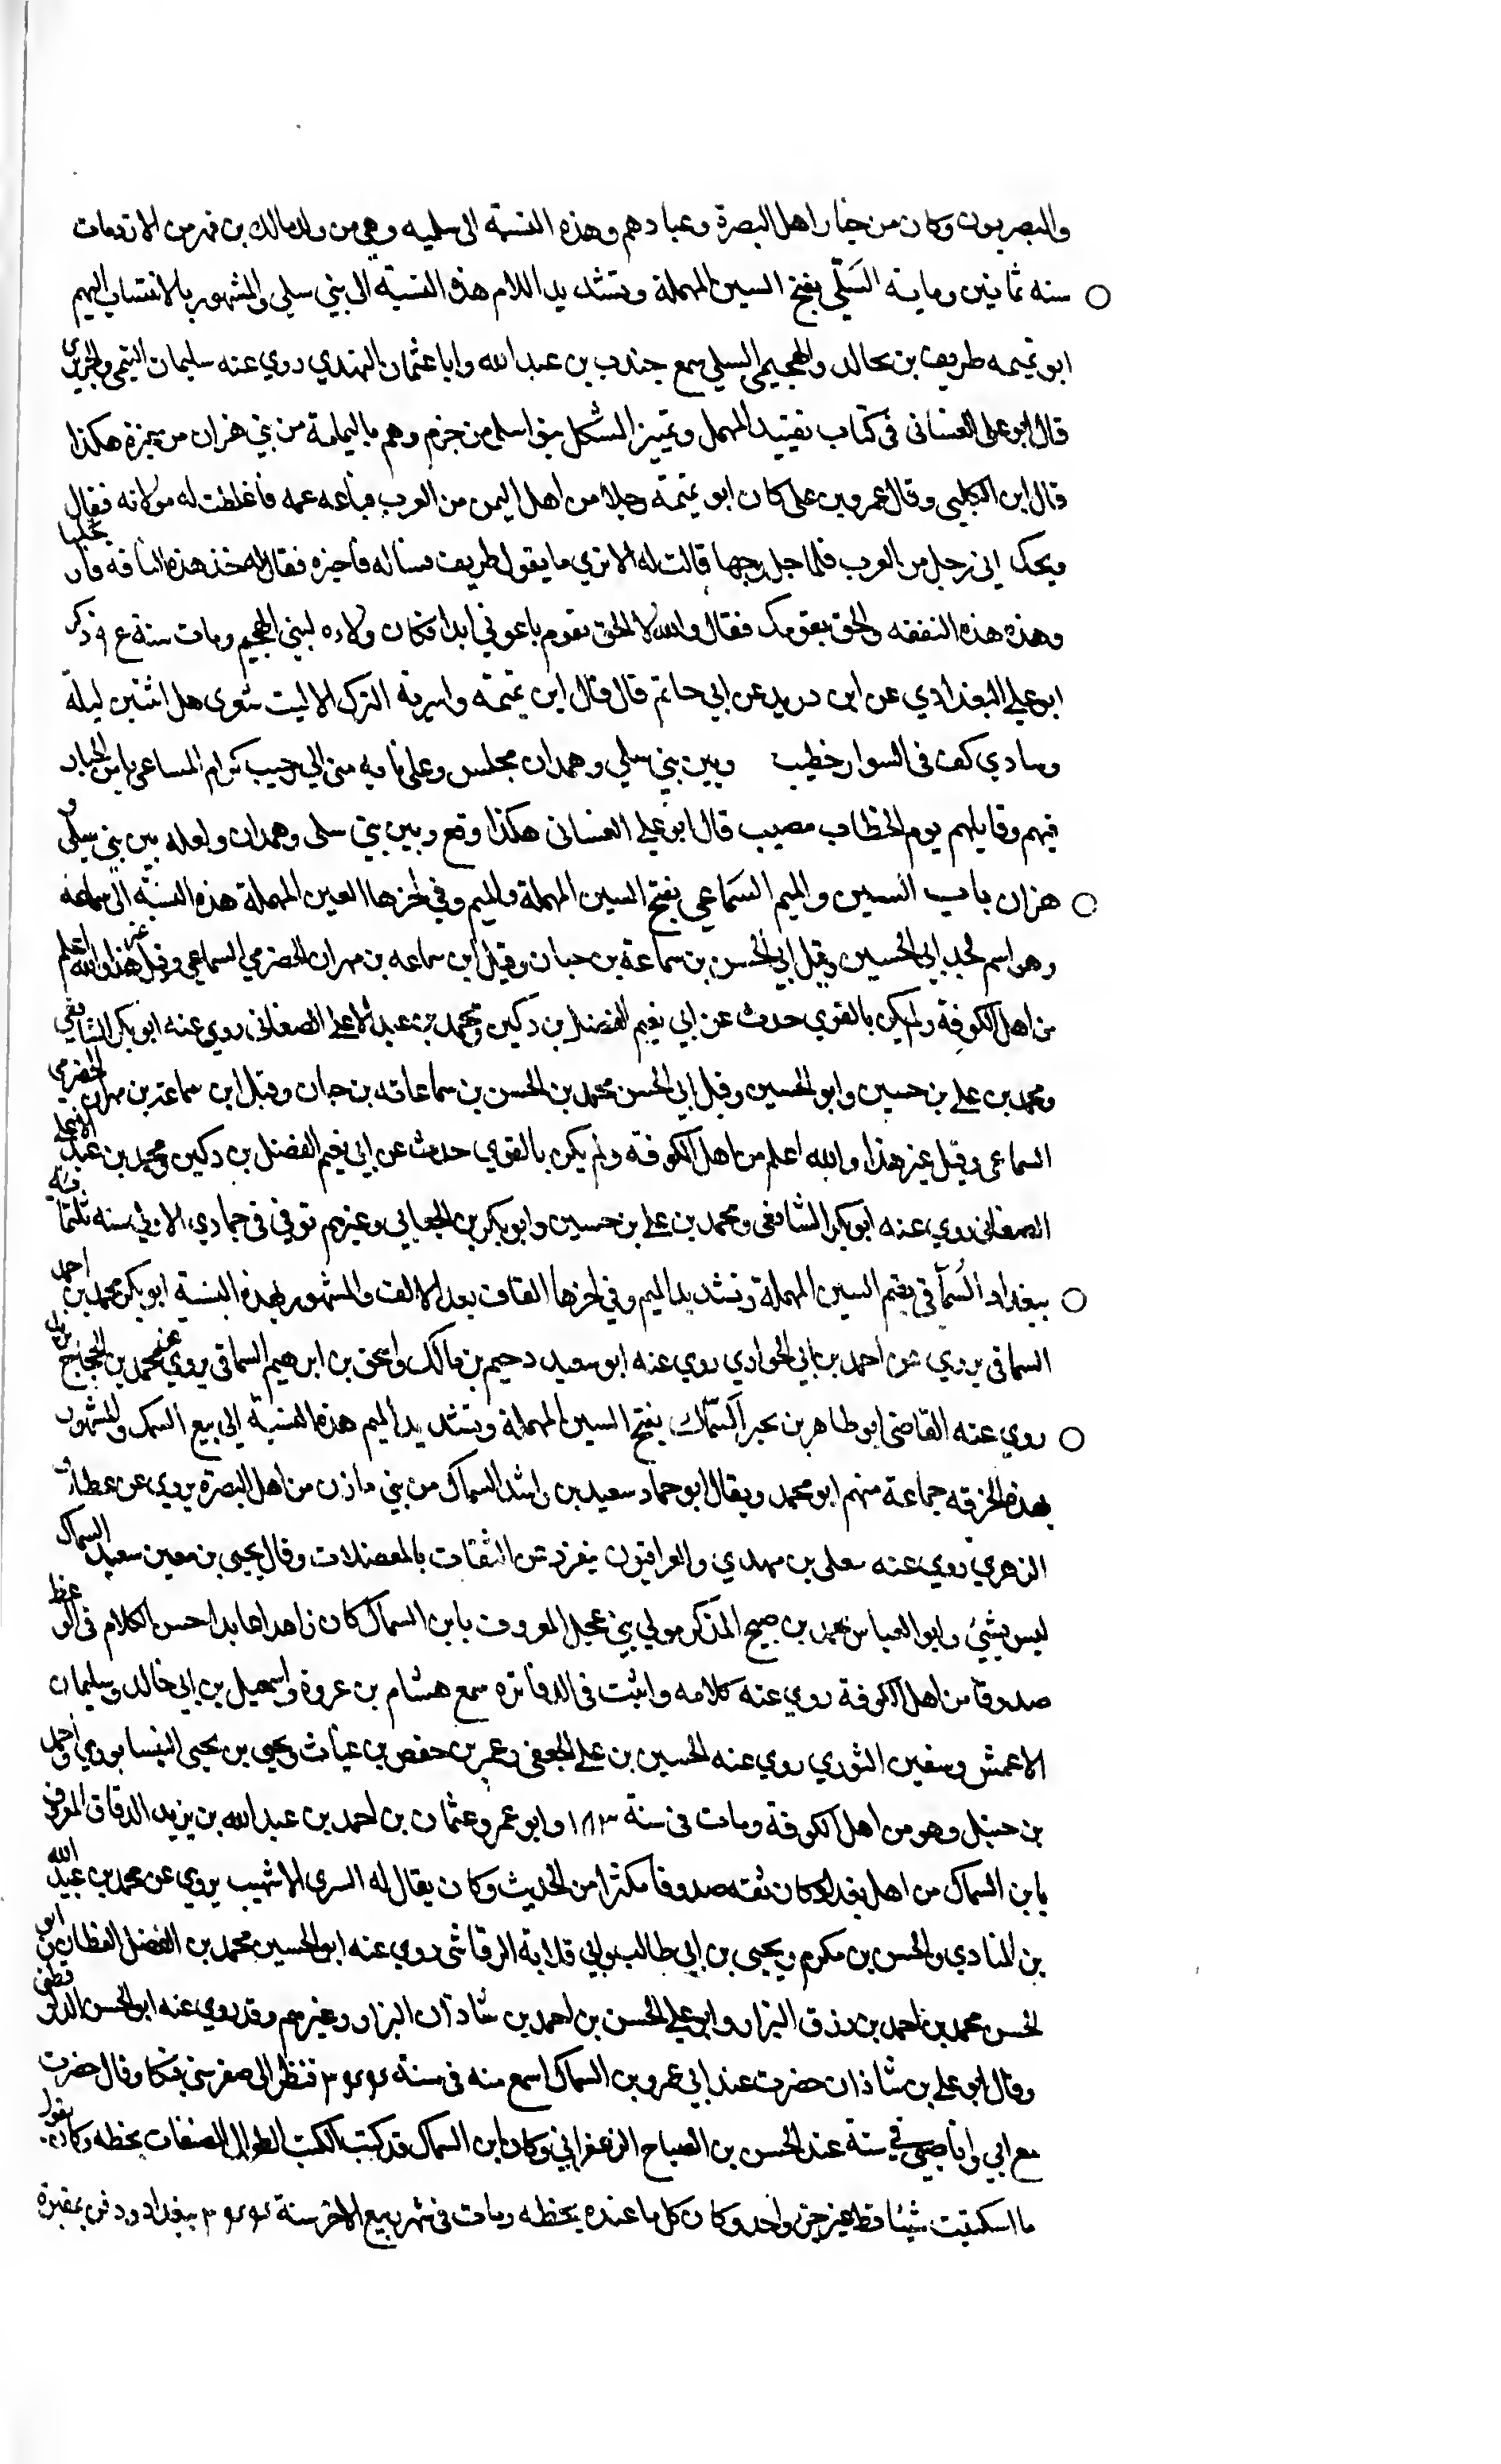 والبصريون وكان من خيار اهل البصرة وعبادهم وهذه النسبة الى سليه وهي من ولد مالك بن فهم من الازد ومات
سنه ثمانين وماية السَلّي بفتح السين المهملة وتشديد اللام هذه النسبة الى بني سلى والمشهور بالانتساب اليهم
ابو تميمه طريف بن مخالد والهجيمي السلي سمع جندب بن عبد الله وابا عثمان النهدي روي عنه سليمان التيمي والجريري
قال ابو على الغسانى فى كتاب تقييد المهمل وتمييز المشكل بنو اسلى من جزم وهم باليمامة من بني هزان من عنزة هكذا
قال ابن الكلبى وقال عمرو بن على كان ابو تميمة رجلا من اهل اليمن من العرب فباعه عمه فاغلظت له مولاته فقال
ويحك انى رجل من العرب فلما جا زوجها قالت له الا تري ما يقول طريف فساله فاخبره فقال له خذ هذه الناقة فاركبها
وهذه هذه النفقه والحق بقومك فقال والله لا الحق بقوم باعوني ابدا فكان ولاءه لبني الهجيم ومات سنة ع ٩ ذكر
ابو علي البغدادي عن ابن دريد عن ابي حاتم قال قال ابن تميمة واسرته الترك الا ليت شعرى هل ابيتن ليلة
وسادي كف فى السوار خطيب وبين بني سلي وهمدان مجلس وعلى نايه منى الي حبيب كرام المساعى يامن الجار
فيهم وقايلهم يوم الخطاب مصيب قال ابو علي الغسانى هكذا وقع وبين بني سلى وهمدان ولعله بين بني سلى و
هزان باب السين والميم السَمَاعي بفتح السين المهملة والميم وفي اخرها العين المهملة هذه النسبة الى سماعه
وهو اسم لجد ابي الحسين وقيل ابي الحسن بن سماعة بن حبان وقيل ابن سماعه بن مهران الحضرمي السماعي وقيل غير هذا والله اعلم
من اهل الكوفة ولم يكن بالقوي حدث عن ابي نعيم الفضل بن دكين ومحمد بن عبد الاعلى الصنعانى روي عنه ابو بكر الشافعي
ومحمد بن علي بن حسين وابو الحسين وقيل ابي الحسن محمد بن الحسن بن سماعاته بن حبان وقيل ابن سماعة بن مهران الحضرمي
السماعى وقيل غير هذا والله اعلم من اهل الكوفة ولم يكن بالقوي حدث عن ابي نعيم الفضل بن دكين ومحمد بن عبد الاعلى
الصنعانى روي عنه ابو بكر الشافعى ومحمد بن علي بن حسين وابو بكر بن الجعابي وغيرهم توفي في جمادي الاولى سنه ثلثماية
ببغداد السُمّاقي بضم السين المهملة وتشديد الميم وفي اخرها القاف بعد الالف والمشهور بهذه النسبة ابو بكر محمد بن احمد
السماقى يروي عن احمد بن ابي الحواري روي عنه ابو سعيد دحيم بن مالك واسحق بن ابرهيم السماقى يروي عن محمد بن الحجاج
روي عنه القاضى ابو طاهر بن بحير السمّاك بفتح السين المهملة وتشديد الميم هذه النسبة الي بيع السمك والمشهور
بهذه الحرفة جماعة منهم ابو محمد ويقال ابو حماد سعيد بن راشد السماك من بني مازن من اهل البصرة يروي عن عطا و
الزهري روي عنه معلى بن مهدي والعراقيون ينفرد عن الثقات بالمعضلات وقال يحيى بن معين سعيد السماك
ليس بشي وابو العباس محمد بن صبيح المذكر مولي بني عجل المعروف بابن السماك كان زاهدا عابدا حسن الكلام فى الوعظ
صدوقا من اهل الكوفة روي عنه كلامه واثبت فى الدفاتره سمع هشام بن عروة واسمعيل بن ابي خالد وسليمان
الاعمش وسفين الثوري روي عنه الحسين بن علي الجعفى وعمر بن حفص بن غياث ويحيى بن يحيى النيسابوري واحمد
بن حنبل وهو من اهل الكوفة ومات فى سنة ١٨٣ وابو عمرو عثمان بن احمد بن عبد الله بن يزيد الدقاق المعروف
بابن السماك من اهل بغداد كان ثقه صدوقا مكثرا من الحديث وكان يقال له السرى الاشهب يروي عن محمد بن عبيد الله
بن المنادي والحسن بن مكرم ويحيى بن ابي طالب وابي قلابة الرقاشى روي عنه ابو الحسين محمد بن الفضل القطان وابو
الحسن محمد بن احمد بن رزق البزاز وابو علي الحسن بن احمد بن شاذان البزاز وغيرهم وقد روي عنه ابو الحسن الدارقطنى
وقال ابو علي بن شاذان حضرت عند ابي عمرو بن السماك اسمع منه فى سنة فنظر الى صغر سني فبكا وقال حضرت
مع ابي وانا صبي فى سنة عند الحسن بن الصباح الزعفراني وكان ابن السماك قد كتب الكتب الطوال المصنفات بخطه وكان يقول
ما استكتبت شيئا قط غير جزء واحد وكان كل ما عنده بخطه ومات فى شهر ربيع الاخر سنة ببغداد ودفن بمقبرة